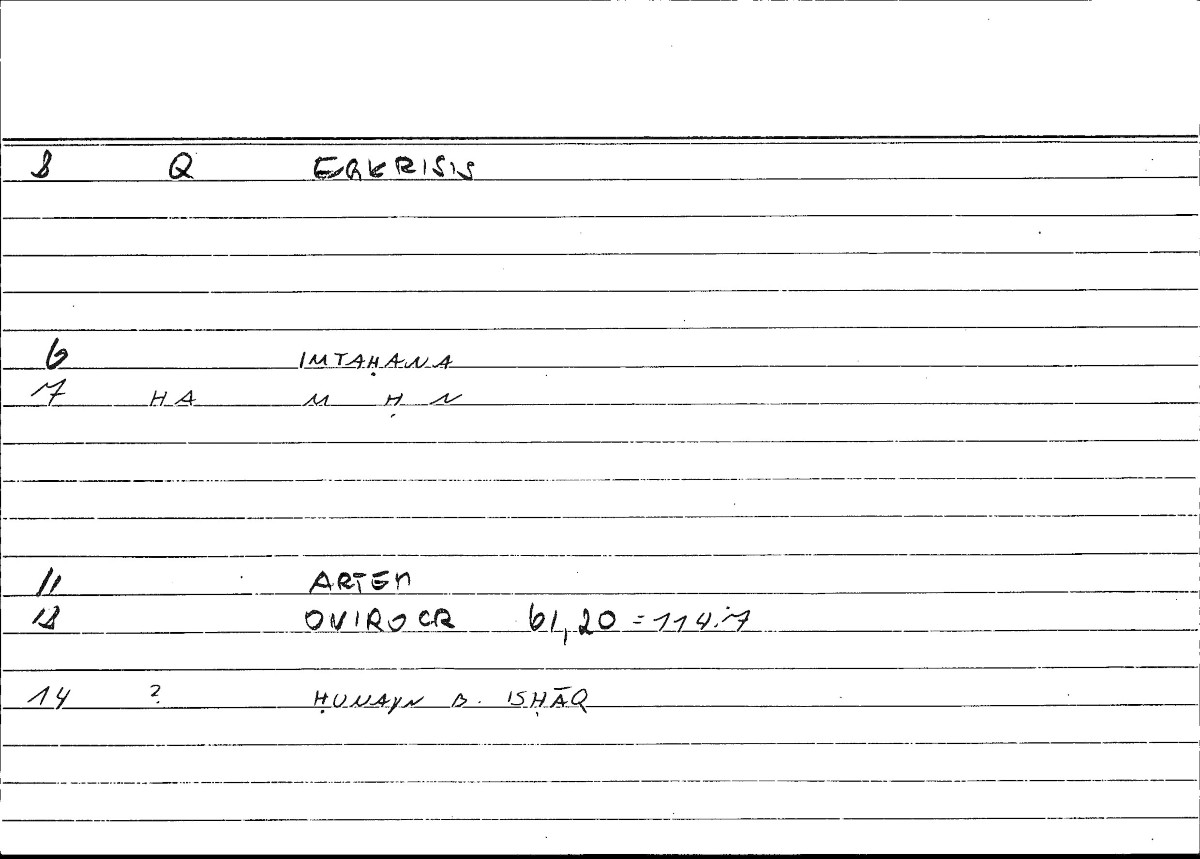 2 Q EGKRISIS
6 IMTAḤANA
7 HA M Ḥ N
11 ARTEM
12 ONIROCR 61,20 = 114.7
14 ? ḤUNAYN B. ISḤĀQ